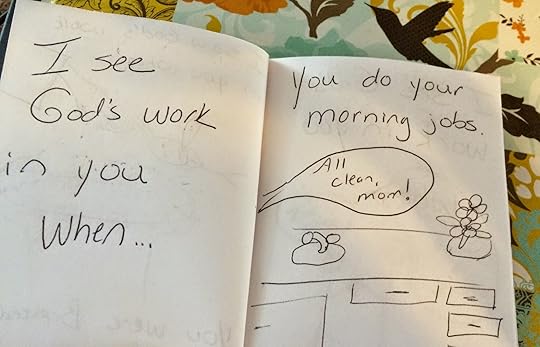 I see
God's work
in you
When...
You do your
morning jobs.
All
clean,
mom!